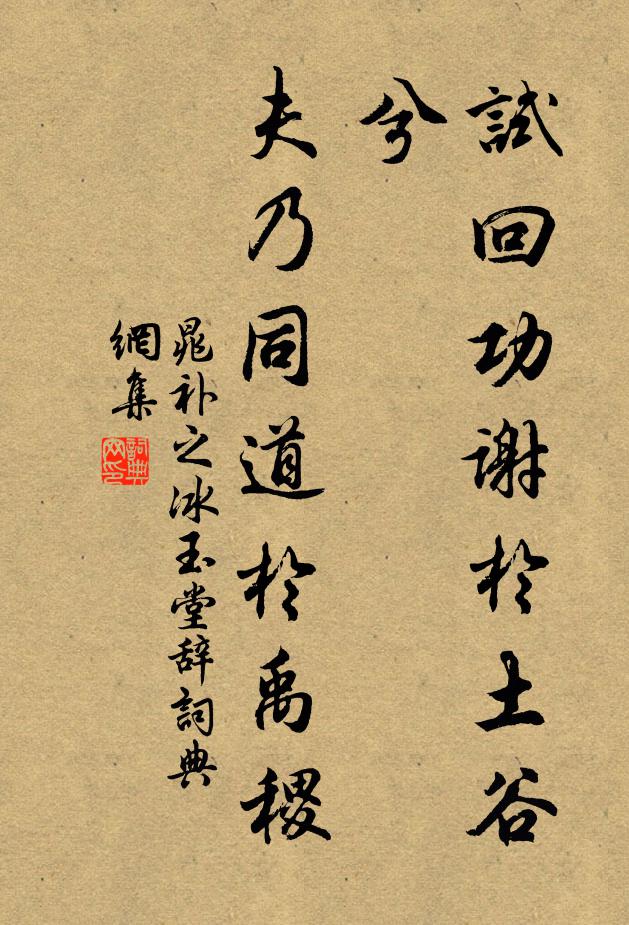 試回功謝於土谷
兮
夫乃同道於禹稷
晁补之冰玉堂辞詞典
網集
詞典
网印